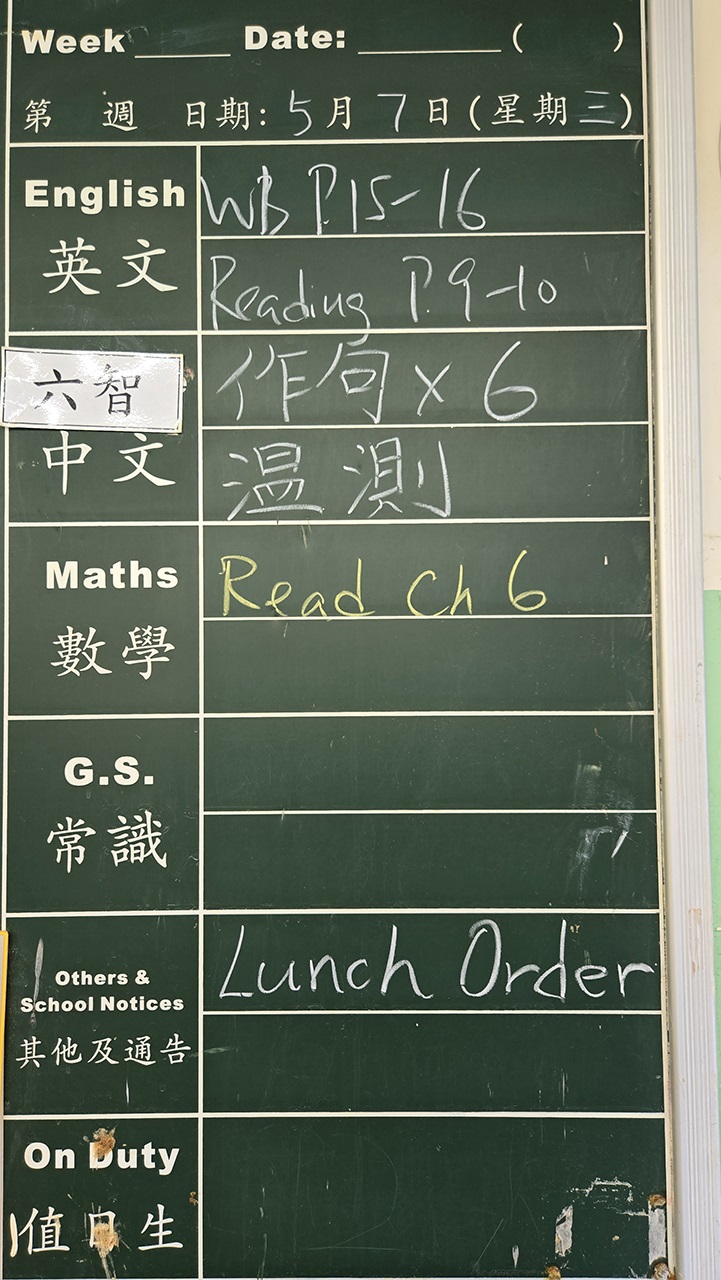 Week Date: ( )
第 週 日期: 5月7日(星期三)
English WB P.15-16
英文 Reading P.9-10
六智 作句 x 6
中文 温測
Maths Read Ch 6
數學
G.S.
常識
Others & Lunch Order
School Notices
其他及通告
On Duty
值日生